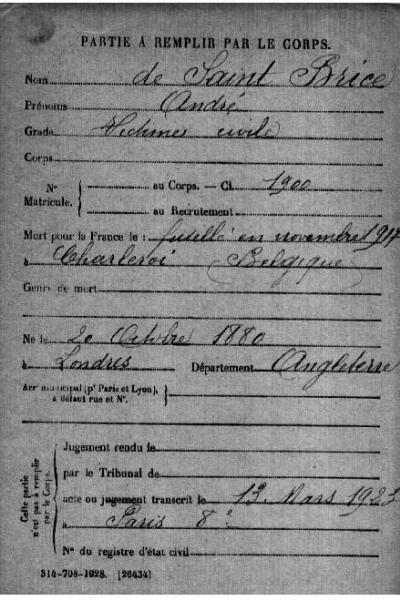 PARTIE À REMPLIR PAR LE CORPS.
Nom de Saint Brice
Prénoms André
Grade Victime civile
Corps
N° Matricule. { au Corps. — Cl. 1900
au Recrutement
Mort pour la France le : fusillé en novembre 1917
à Charleroi (Belgique)
Genre de mort
Né le 20 Octobre 1880
à Londres Département Angleterre
Arr. municipal (pr Paris et Lyon), à défaut rue et N°. }
Cette partie n'est pas à remplir par le Corps.
Jugement rendu le
par le Tribunal de
acte ou jugement transcrit le 13 Mars 1923
à Paris 8e
N° du registre d'état civil
314-708-1928. [26434]